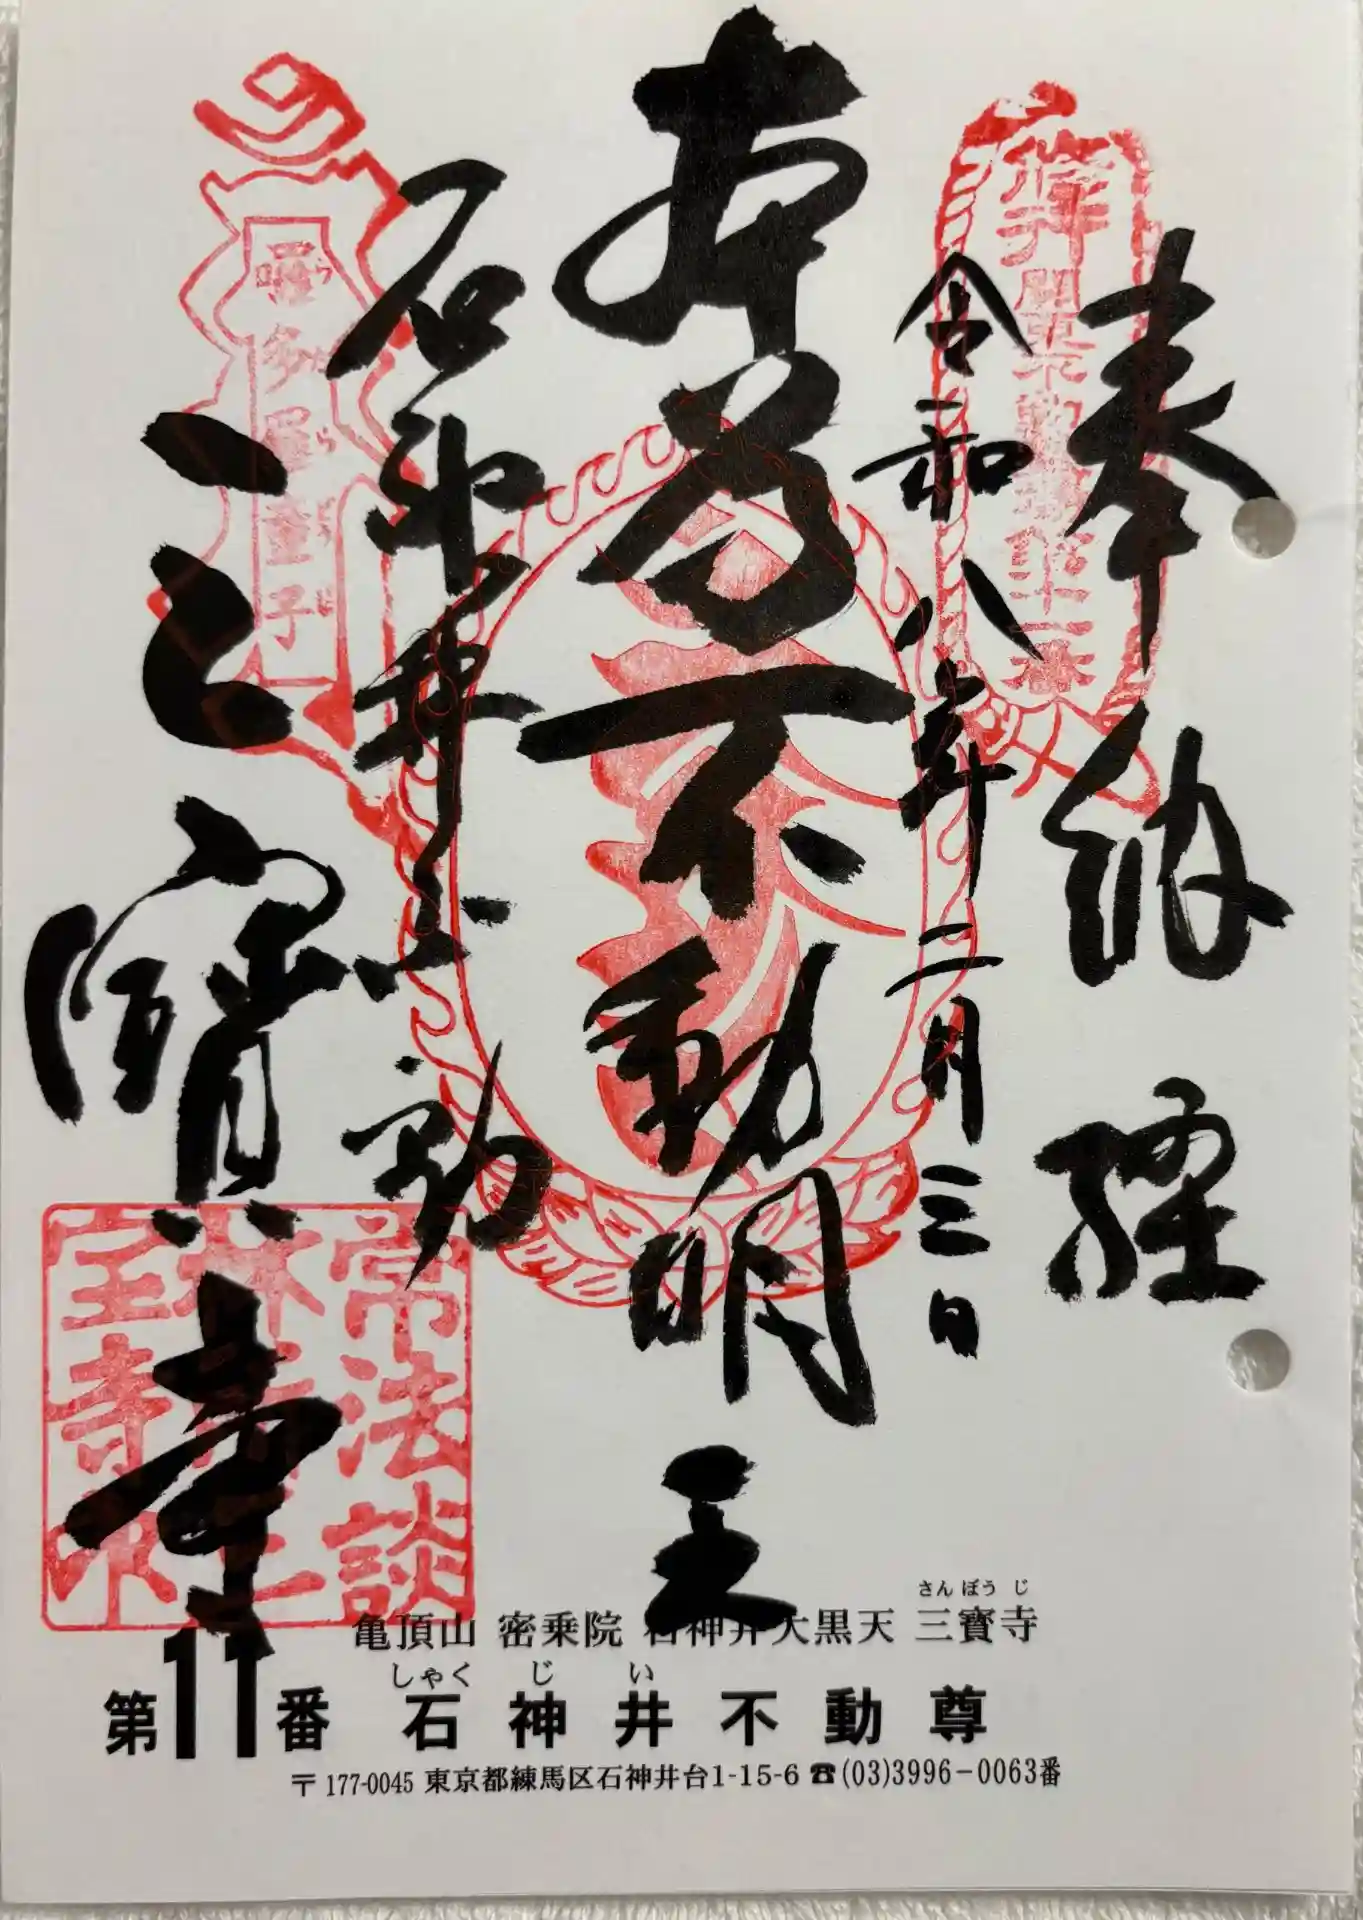 奉納経
令和八年二月三日
本尊不動明王
石神井不動
三寳寺
関東不動霊場第十一番
羅多羅童子
常法談
亀頂山 密乗院 石神井大黒天 三寳寺
さんぼうじ
第11番 石神井不動尊
しゃくじい
〒177-0045 東京都練馬区石神井台1-15-6 ☎(03)3996-0063番